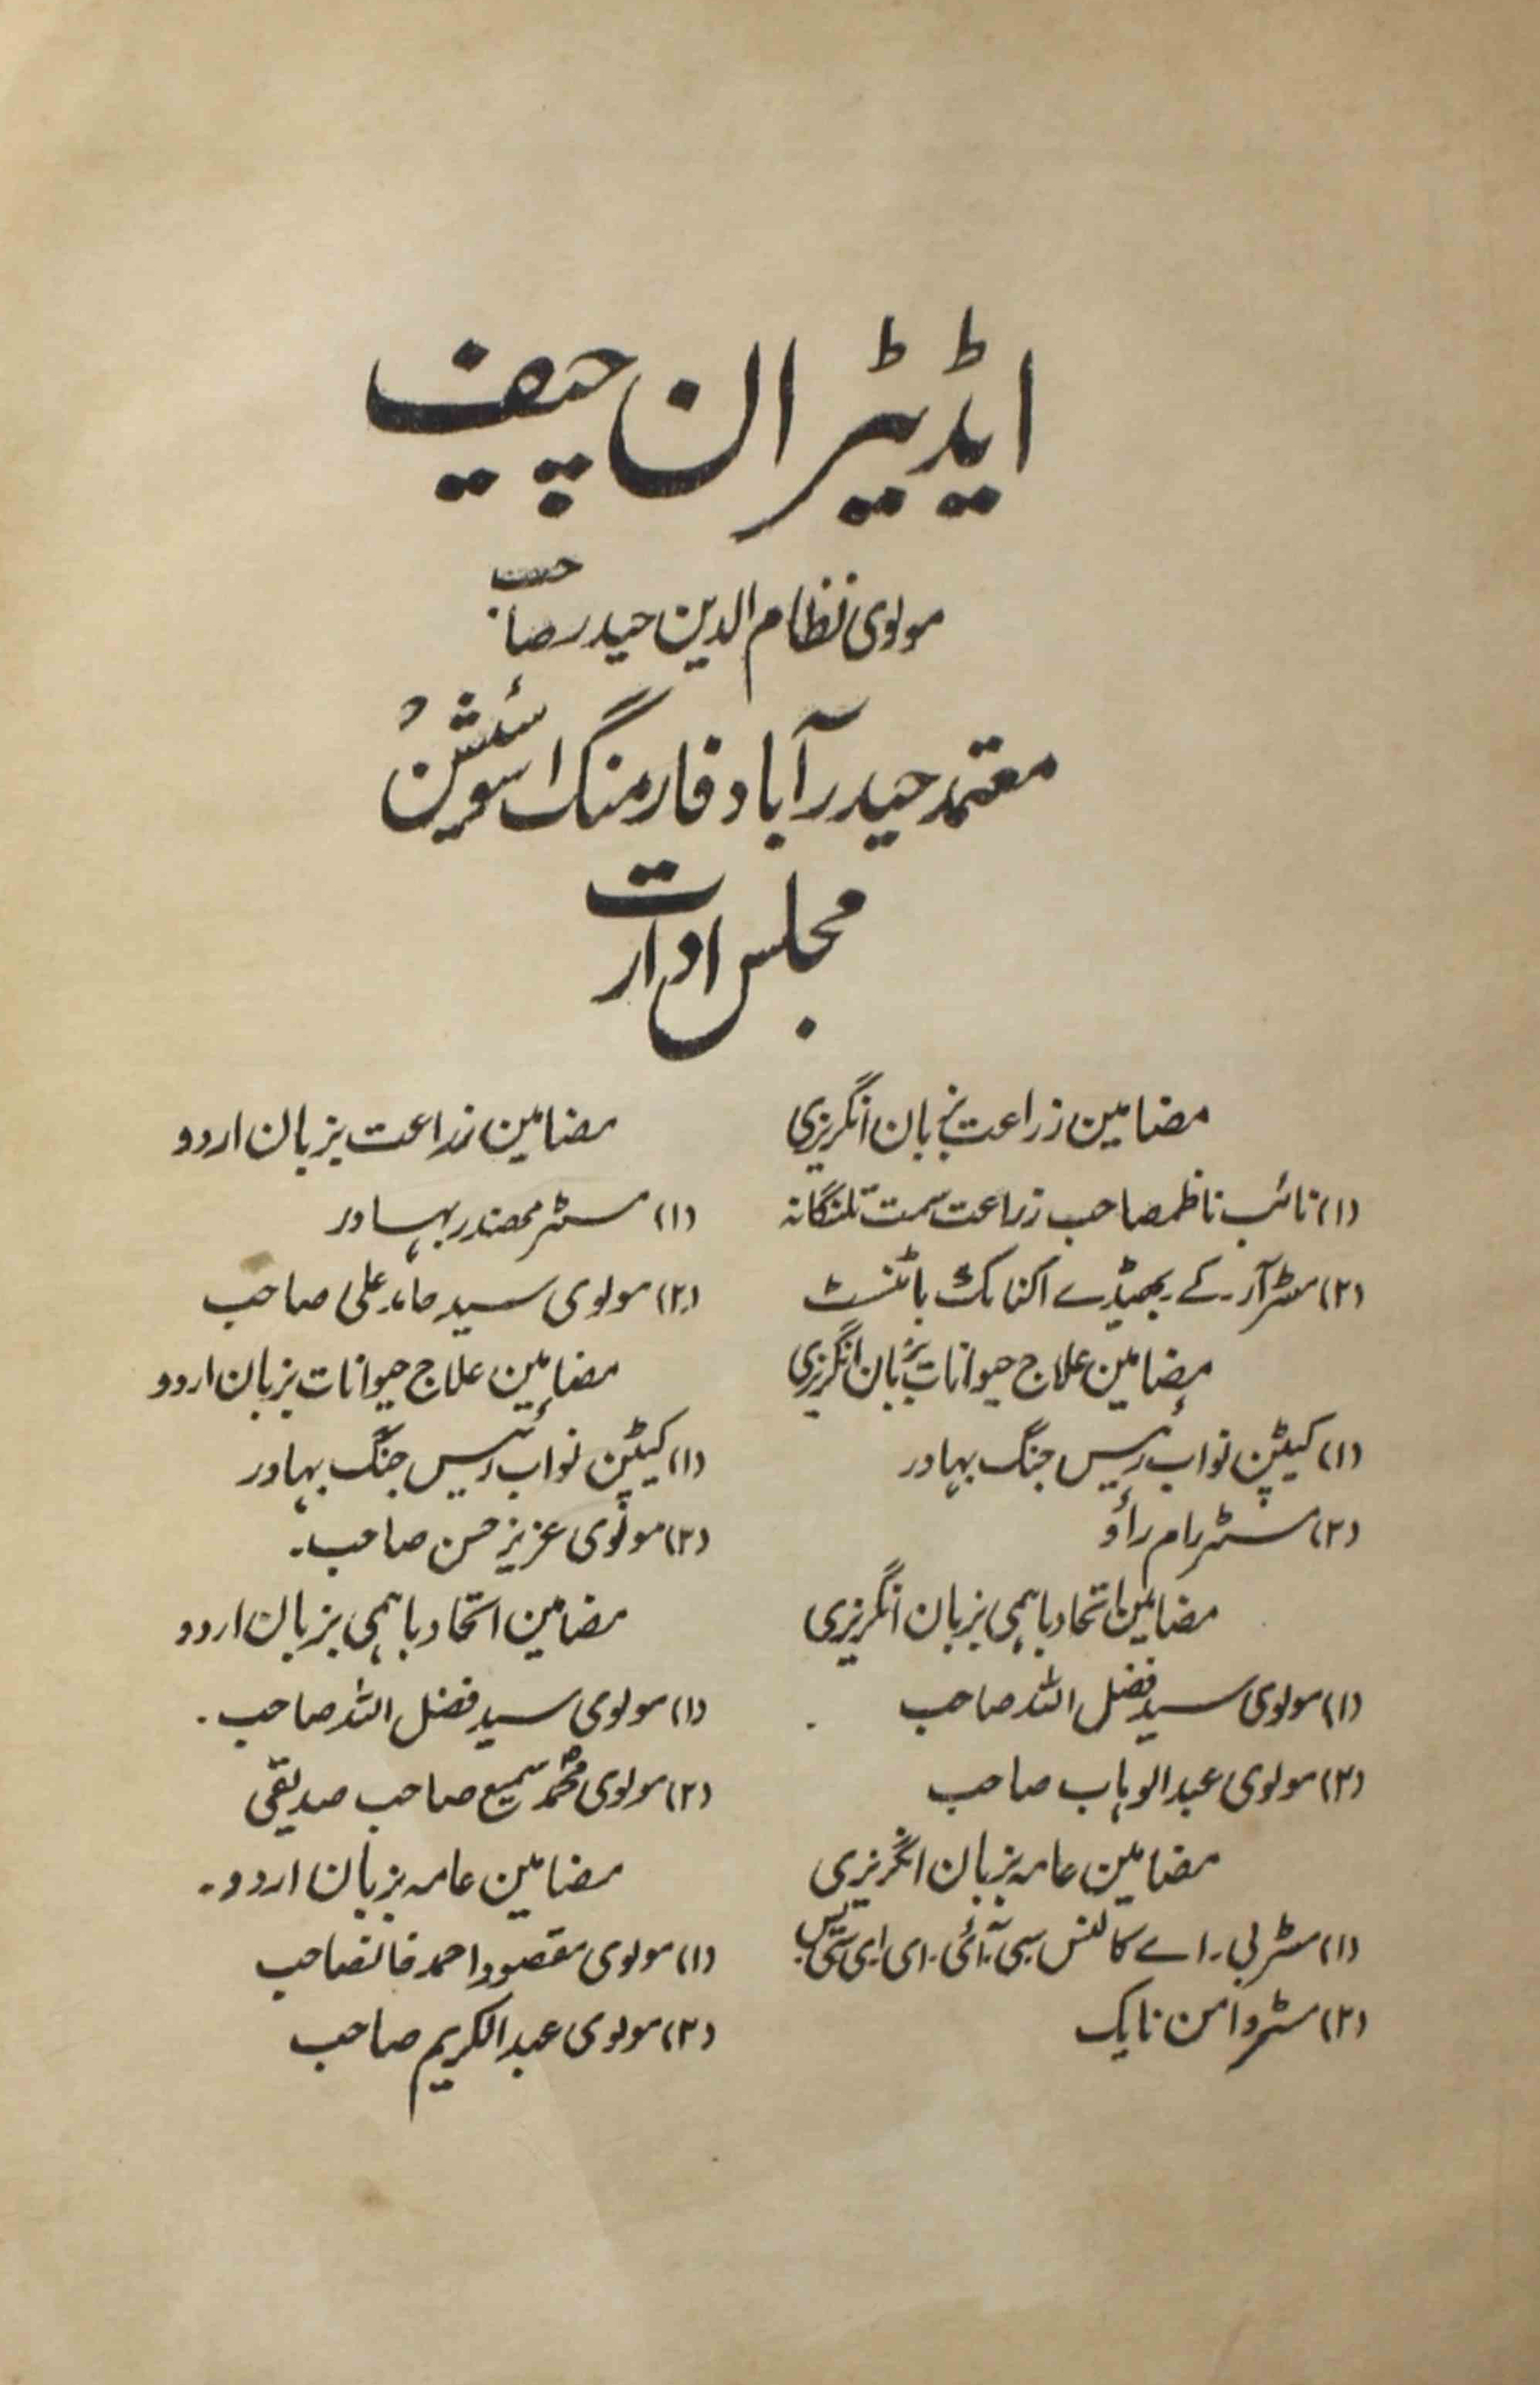 ایڈیٹران چیف
مولوی نظام الدین حیدر صاحب
معتمد حیدرآباد فارمنگ اسوسئیشن
مجلس ادارت
مضامین زراعت بزبان انگریزی
(۱) نائب ناظم صاحب زراعت سمت تلنگانہ
(۲) مسٹر آر۔ کے۔ بھیڈے اکنامک باٹنسٹ
مضامین علاج حیوانات بزبان انگریزی
(۱) کیپٹن نواب رئیس جنگ بہادر
(۲) مسٹر رام راؤ
مضامین اتحاد باہمی بزبان انگریزی
(۱) مولوی سید فضل اللہ صاحب
(۲) مولوی عبدالوہاب صاحب
مضامین عامہ بزبان انگریزی
(۱) مسٹر بی۔ اے کالنس سی۔ آئی۔ ای۔
(۲) مسٹر وامن نایک
مضامین زراعت بزبان اردو
(۱) مسٹر بہادر
(۲) مولوی سید حامد علی صاحب
مضامین علاج حیوانات بزبان اردو
(۱) کیپٹن نواب رئیس جنگ بہادر
(۲) مولوی عزیز حسن صاحب۔
مضامین اتحاد باہمی بزبان اردو
(۱) مولوی سید فضل اللہ صاحب۔
(۲) مولوی محمد سمیع صاحب صدیقی
مضامین عامہ بزبان اردو۔
(۱) مولوی مقصود احمد خانصاحب
(۲) مولوی عبدالکریم صاحب